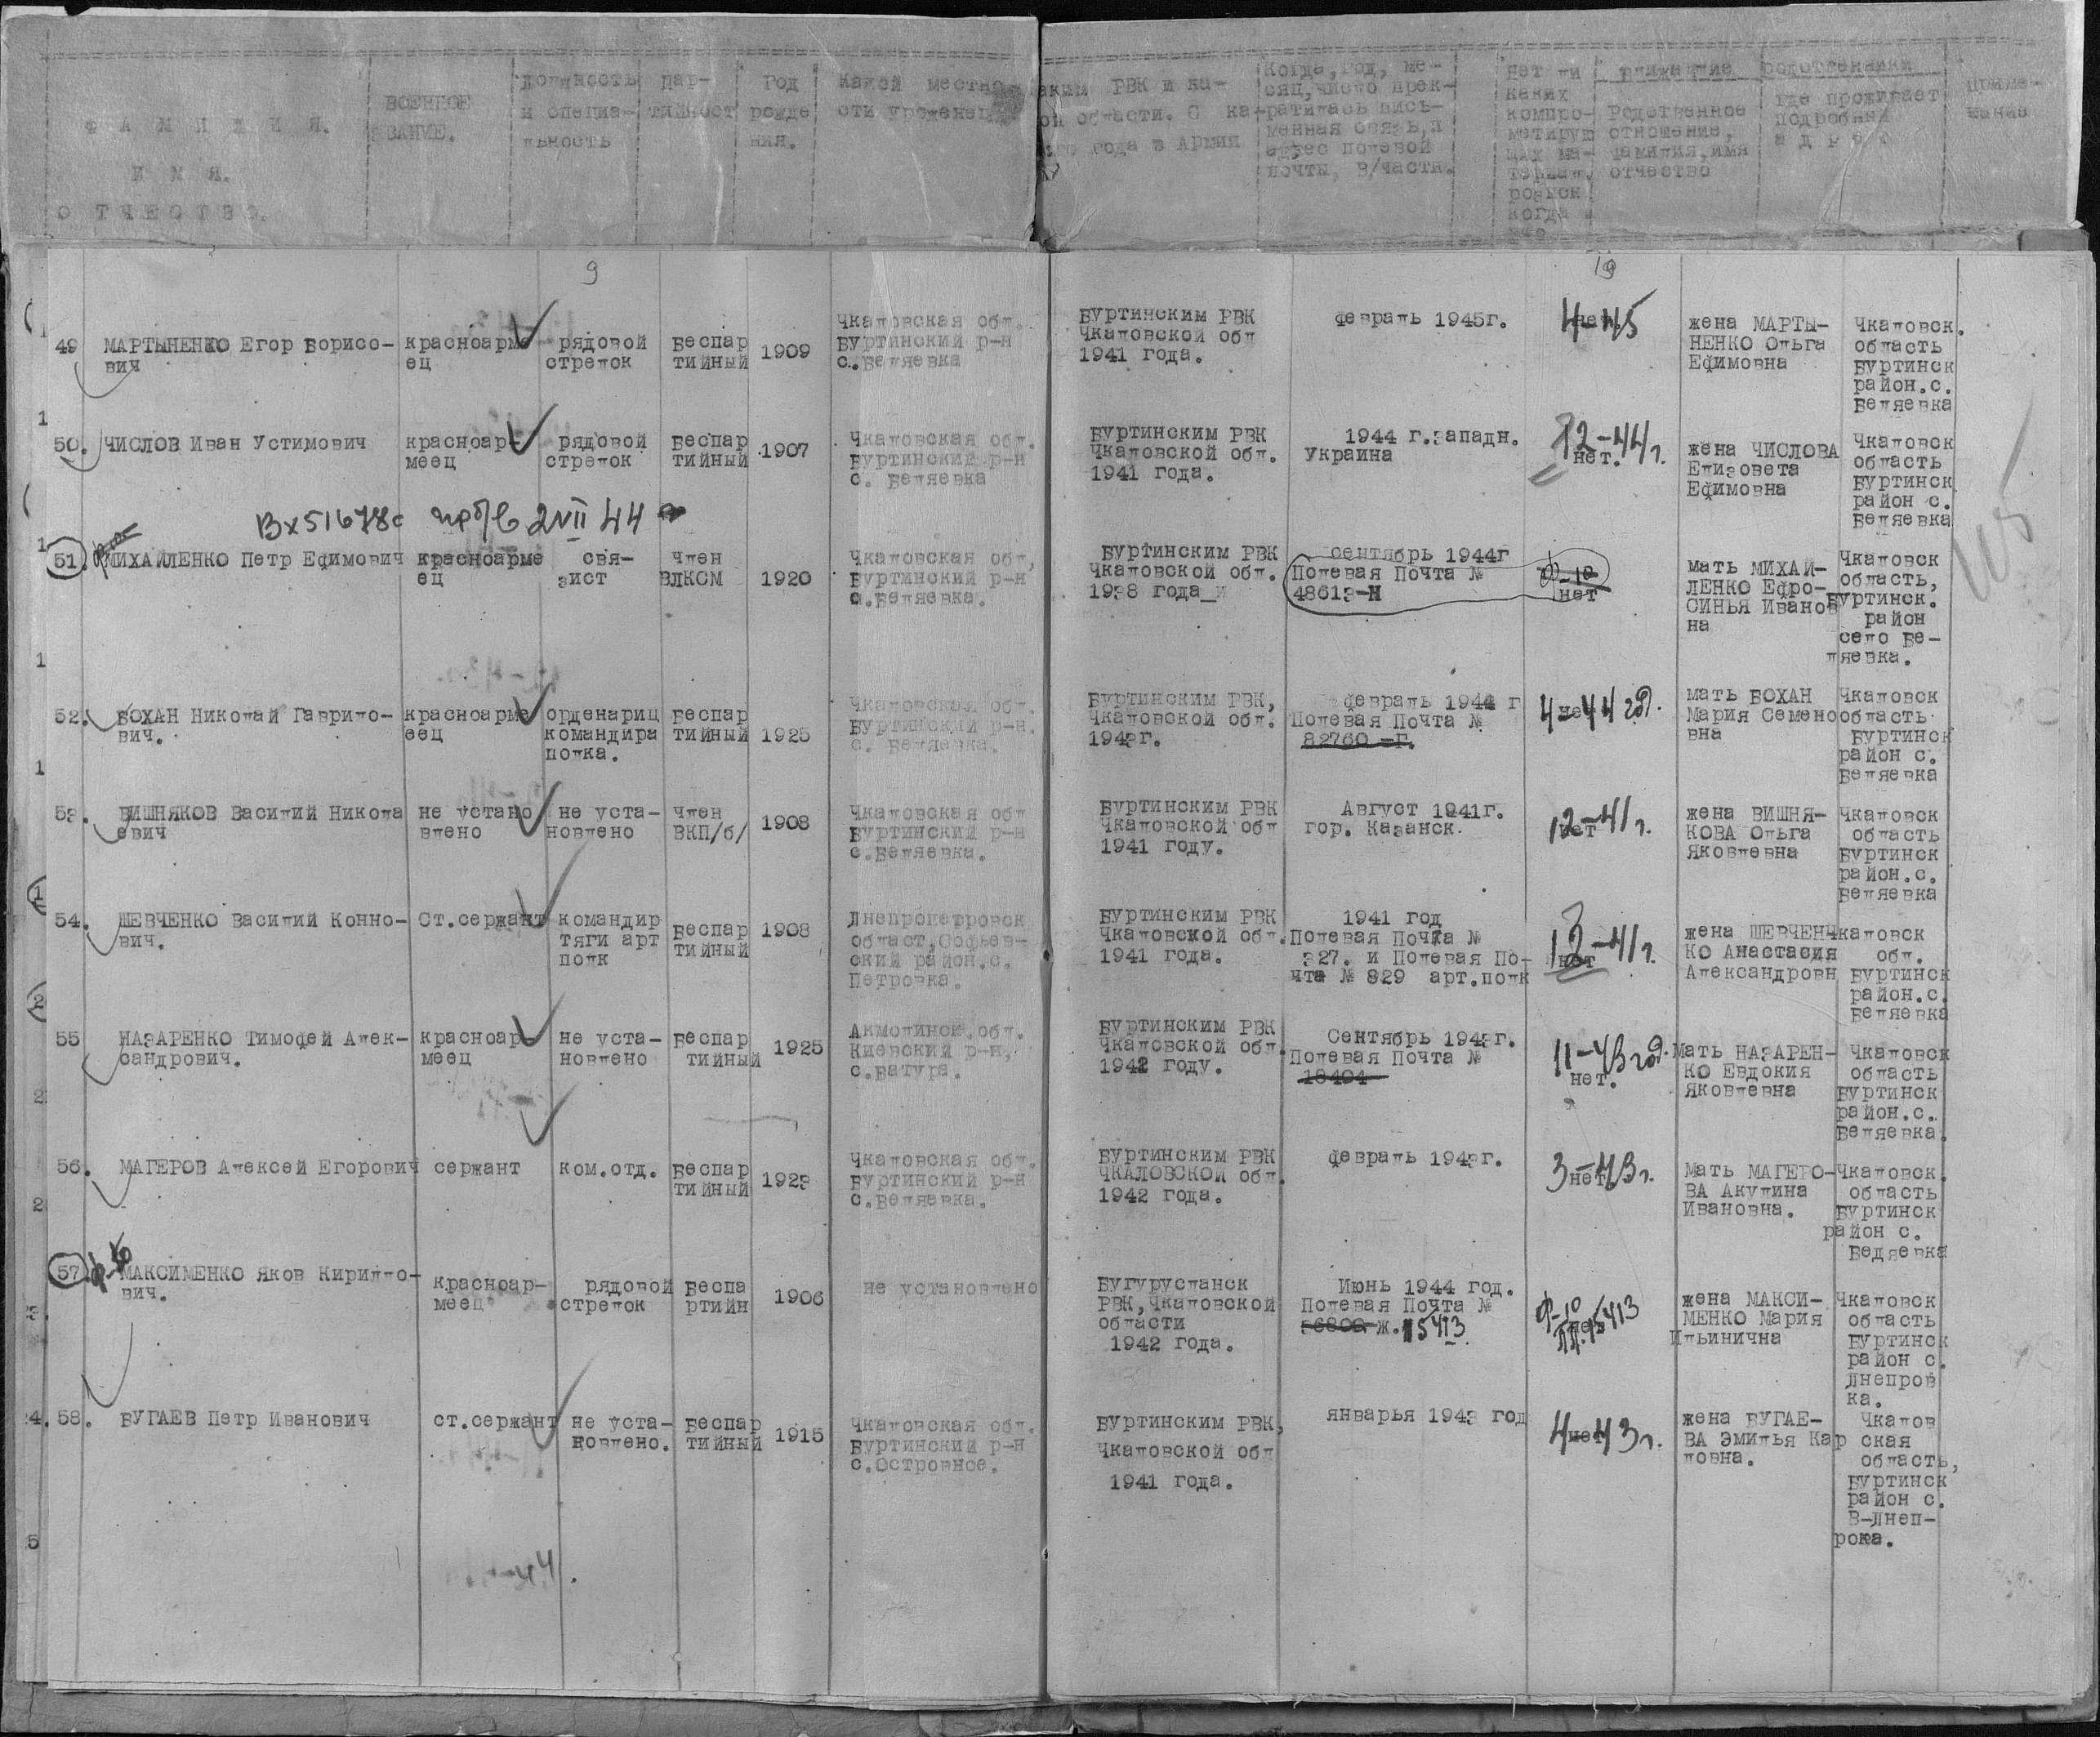 Ф А М И Л И Я.
И М Я.
О Т Ч Е С Т В О.
ВОЕННОЕ
ЗВАНИЕ.
Должность
и специа-
льность
Пар-
тийност
Год
рожде
ния.
Какой местно-
сти уроженец
аким РВК и ка-
ой области. С ка-
го года в Армии
Когда, год, ме-
сяц, число прек-
ратилась пись-
менная связь, и
адрес полевой
почты, в/части.
Нет ли
каких
компро-
метирую
щих ма-
териал.
розыск
когда и
Ближайшие родственники
Родственное
отношение,
фамилия, имя
отчество
Где проживает
подробный
а д р е с
Приме-
чание
9
19
49
МАРТЫНЕНКО Егор Борисо-
вич
красноарме
ец
рядовой
стрелок
Беспар
тийный
1909
Чкаловская обл.
Буртинский р-н
с.Беляевка
Буртинским РВК
Чкаловской обл
1941 года.
февраль 1945г.
4-45
нет
жена МАРТЫ-
НЕНКО Ольга
Ефимовна
Чкаловск.
область
Буртинск
район.с.
Беляевка
50.
ЧИСЛОВ Иван Устимович
красноар
меец
рядовой
стрелок
Беспар
тийный
1907
Чкаловская обл.
Буртинский р-н
с. Беляевка
Буртинским РВК
Чкаловской обл.
1941 года.
1944 г.западн.
Украина
12-44г.
нет.
жена ЧИСЛОВА
Елизовета
Ефимовна
Чкаловск
область
Буртинск
район с.
Беляевка
Вх51678с
44
51.
МИХАЙЛЕНКО Петр Ефимович
красноарме
ец
свя-
зист
Член
ВЛКСМ
1920
Чкаловская обл,
Буртинский р-н
с.Беляевка.
Буртинским РВК
Чкаловской обл.
1938 года
сентябрь 1944г
Полевая Почта №
48613-Н
ф-10
нет
мать МИХАЙ-
ЛЕНКО Ефро-
СИНЬЯ Иванов
на
Чкаловск
область,
Буртинск.
район
село Бе-
ляевка.
52.
БОХАН Николай Гаврило-
вич.
красноарме
еец
орденариц
командира
полка.
Беспар
тийный
1925
Чкаловская обл.
Буртинский р-н.
с. Беляевка.
Буртинским РВК,
Чкаловской обл.
1943г.
февраль 1944 г
Полевая Почта №
82760 -Г.
4-44 год.
мать БОХАН
Мария Семено
вна
Чкаловск
область
Буртинск
район с.
Беляевка
53.
ВИШНЯКОВ Василий Никола
евич
не устано
влено
не уста-
новлено
Член
ВКП/б/
1908
Чкаловская обл
Буртинский р-н
с.Беляевка.
Буртинским РВК
Чкаловской обл
1941 году.
Август 1941г.
гор. Казанск.
12-41г.
нет
жена ВИШНЯ-
КОВА Ольга
Яковлевна
Чкаловск
область
Буртинск
район.с.
Беляевка
54.
ШЕВЧЕНКО Василий Конно-
вич.
Ст.сержант
командир
тяги арт
полк
Беспар
тийный
1908
Днепропетровск
област,Софьев-
ский район.с.
Петровка.
Буртинским РВК
Чкаловской обл.
1941 года.
1941 год
Полевая Почта №
327. и Полевая По-
чта № 829 арт.полк
12-41г.
нет
жена ШЕВЧЕН
КО Анастасия
Александровн
Чкаловск
обл.
Буртинск
район.с.
Беляевка
55
НАЗАРЕНКО Тимофей Алек-
сандрович.
красноар
меец
не уста-
новлено
Беспар
тийный
1925
Акмолинск.обл.
Киевский р-н,
с.Батура.
Буртинским РВК
Чкаловской обл.
1942 году.
Сентябрь 1943г.
Полевая Почта №
18404
11-43 год.
нет.
Мать НАЗАРЕН-
КО Евдокия
Яковлевна
Чкаловск
область
Буртинск
район.с.
Беляевка.
56.
МАГЕРОВ Алексей Егорович
сержант
ком.отд.
Беспар
тийный
1923
Чкаловская обл.
Буртинский р-н
с.Беляевка.
Буртинским РВК
ЧКАЛОВСКОЙ обл.
1942 года.
февраль 1943г.
3-43г.
нет
Мать МАГЕРО-
ВА Акулина
Ивановна.
Чкаловск.
область
Буртинск
район с.
Бедяевка
57.
МАКСИМЕНКО Яков Кирилло-
вич.
красноар-
меец
рядовой
стрелок
Беспа
ртийн
1906
не установлено
Бугурусланск
РВК,Чкаловской
области
1942 года.
Июнь 1944 год.
Полевая Почта №
ж.15413
ф-10
пп.15413
жена МАКСИ-
МЕНКО Мария
Ильинична
Чкаловск
область
Буртинск
район с.
Днепров
ка.
58.
БУГАЕВ Петр Иванович
ст.сержант
не уста-
новлено.
Беспар
тийный
1915
Чкаловская обл.
Буртинский р-н
с.Островное.
Буртинским РВК,
Чкаловской обл
1941 года.
январья 1943 год
4-43г.
нет
жена БУГАЕ-
ВА Эмилья Кар
ловна.
Чкалов
ская
область,
Буртинск
район с.
В-Днеп-
рока.